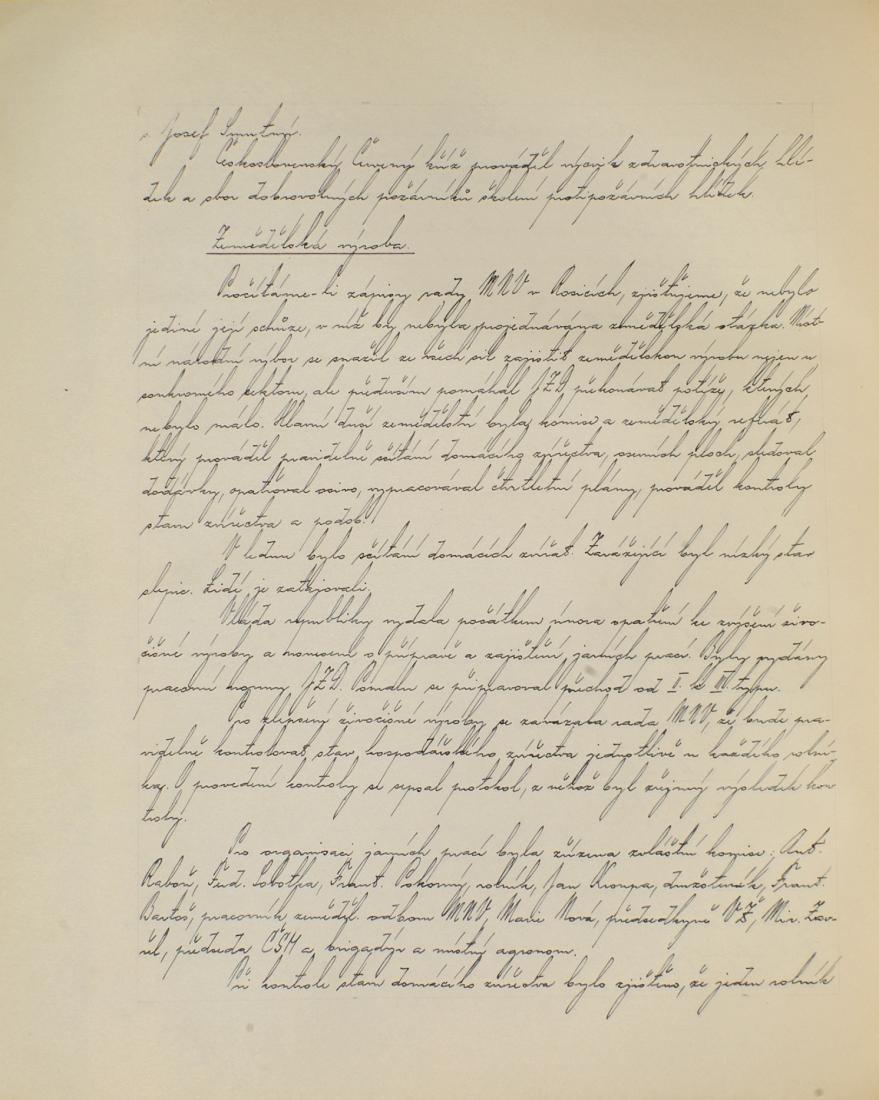 s. Josef Smutný.
Československý Červený kříž prováděl výcvik zdravotnických hlí-
dek a sbor dobrovolných požárníků školení protipožárních hlídek.
Zemědělská výroba.
Pročítáme-li zápisy rady MNV v Rosicích, zjišťujeme, že nebylo
jediné její schůze, v níž by nebyla projednávána zemědělská otázka. Míst-
ní národní výbor se snažil ze všech sil zajistit zemědělskou výrobu nejen u
soukromého sektoru, ale především pomáhal JZD překonávat potíže, kterých
nebylo málo. Hlavní duší zemědělství byla komise a zemědělský referát,
který prováděl pravidelné sčítání domácího zvířectva, osevních ploch, sledoval
dodávky, opatřoval osivo, vypracovával čtvrtletní plány, prováděl kontroly
stavu zvířectva a podob.
V lednu bylo sčítání domácích zvířat. Zarážející byl nízký stav
slepic. Lidé je zatajovali.
Vláda republiky vydala počátkem února opatření ke zvýšení živo-
čišné výroby a usnesení o přípravě a zajištění jarních prací. Byly vydány
pracovní normy JZD. Pomalu se připravoval přechod od II. k III. typu.
Pro zlepšení živočišné výroby se zavázala rada MNV, že bude pra-
videlně kontrolovat stav hospodářského zvířectva jednotlivě u každého rolní-
ka. O provedení kontroly se sepsal protokol, z něhož byl zřejmý výsledek kon
troly.
Pro organisaci jarních prací byla zřízena zvláštní komise: Ant.
Raboň, Ferd. Sobotka, Frant. Pokorný, rolník, Jan Kroupa, družstevník, Frant.
Bartoš, pracovník zeměděl. odboru MNV, Marie Nová, předsedkyně VŽ, Mir. Zav-
řel, předseda ČSM a brigadýr a místný agronom.
Při kontrole stavu domácího zvířectva bylo zjištěno, že jeden rolník